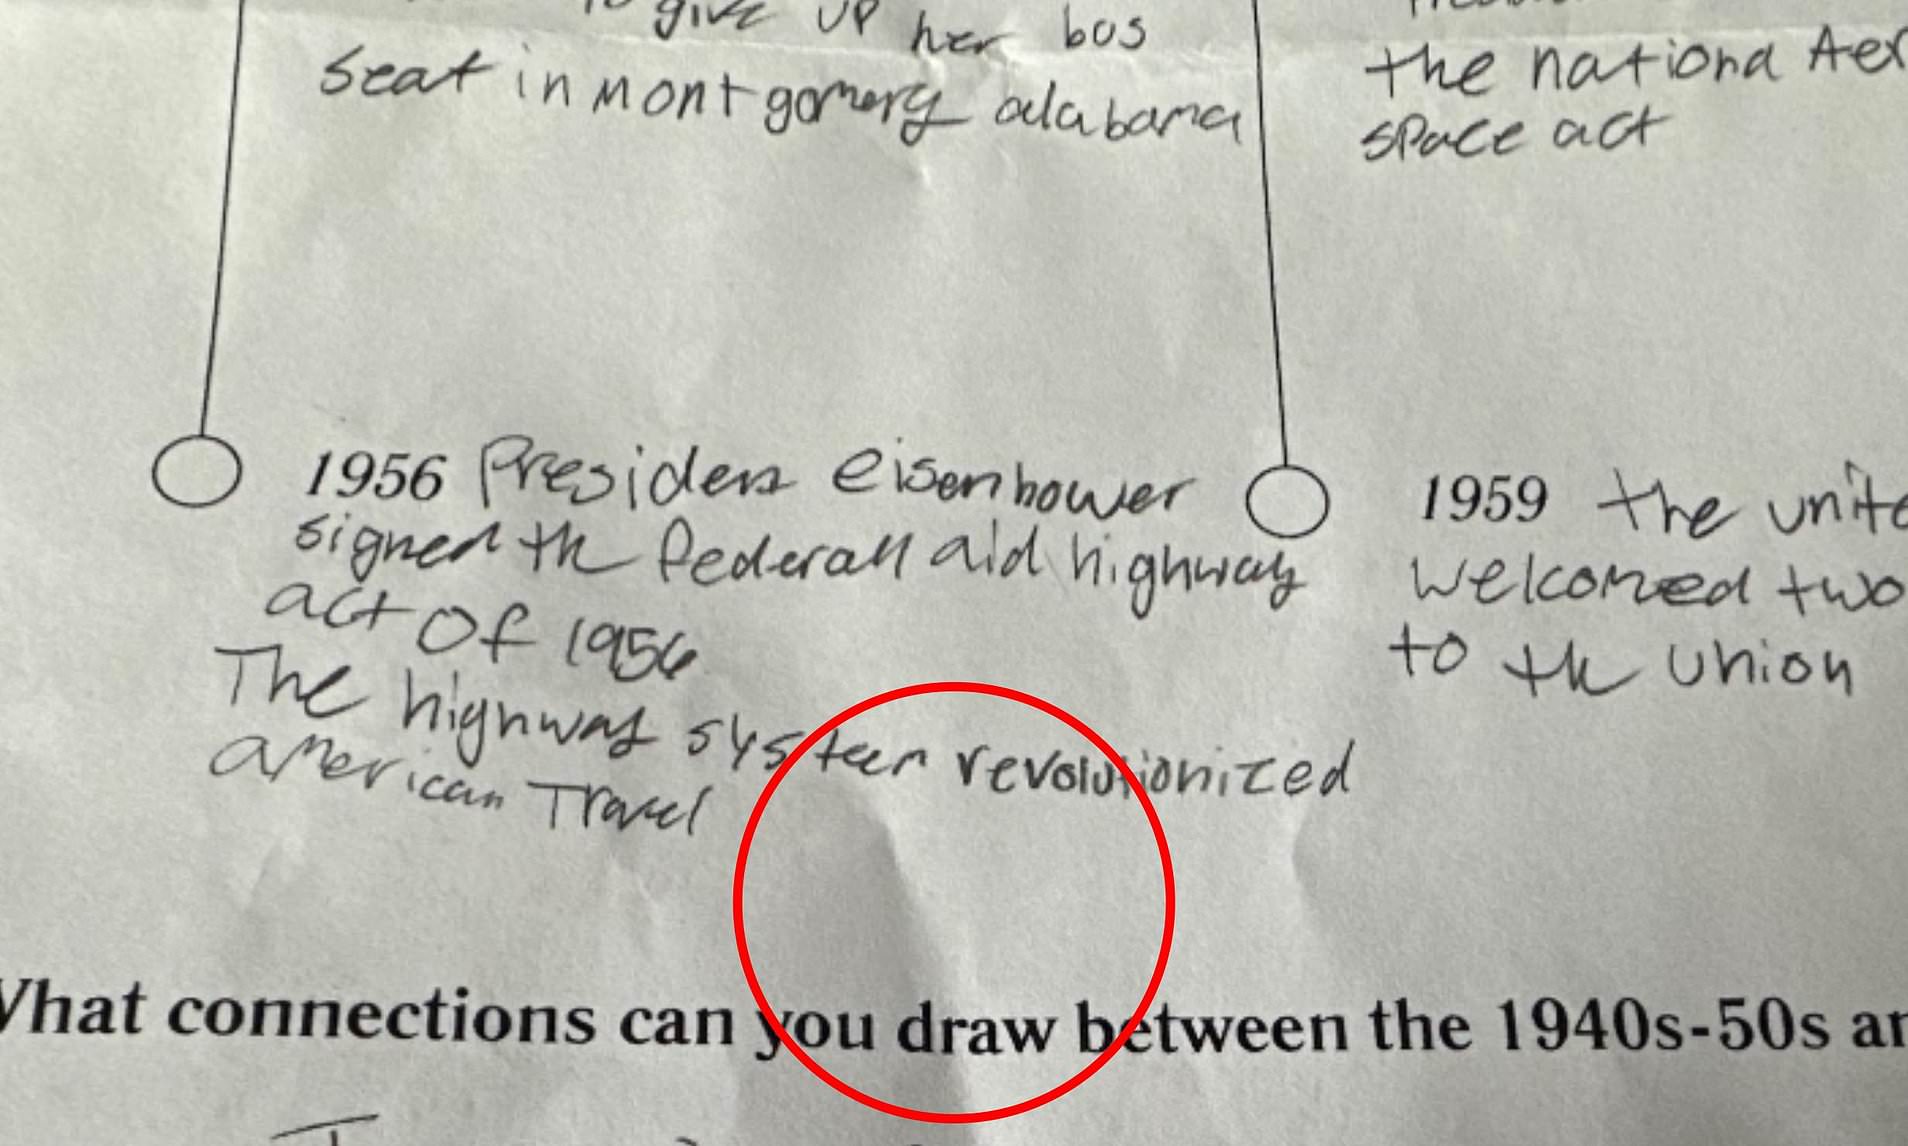 to give up her bus
seat in Montgomery alabama
the nationa Aer
space act
1956 Presiden eisenhower
signed the federall aid highway
act of 1956
The highway system revolutionized
american Travel
1959 the unite
welcomed two
to the union
What connections can you draw between the 1940s-50s an